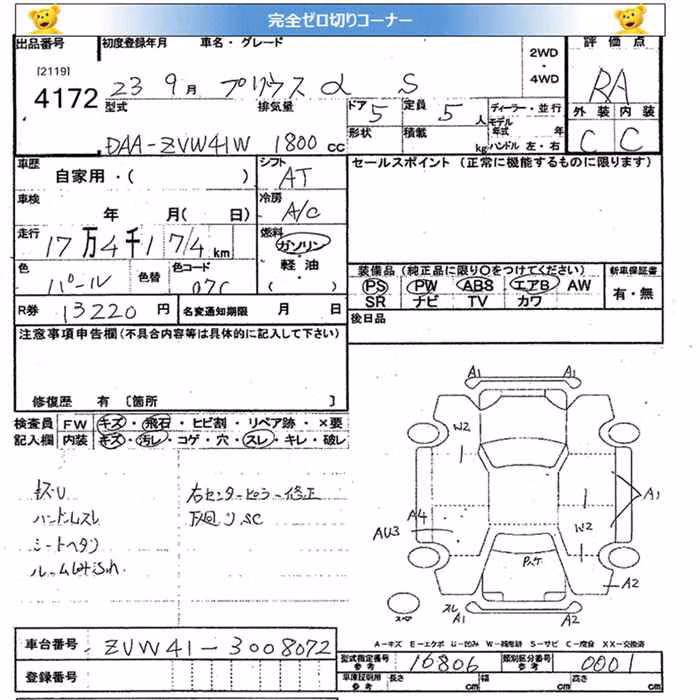 完全ゼロ切りコーナー
出品番号 初度登録年月 車名・グレード 2WD・4WD 評価点
[2119]
4172 23 9月 プリウスα S RA
型式 排気量 ドア 5 定員 5人 ディーラー・並行 外装 内装
DAA-ZVW41W 1800cc 形状 積載 kg モデル年式 年 ハンドル 左・右 C C
車歴 自家用・( ) シフト AT セールスポイント (正常に機能するものに限ります)
車検 年 月(日) 冷房 A/C
走行 17万4千174km 燃料 ガソリン
軽油
( )
色 パール 色替 色コード 070 装備品 (純正品に限り○をつけてください) 新車保証書
PS PW ABS エアB AW 有・無
SR ナビ TV カワ
R券 13220円 名変通知期限 月 日 後日品
注意事項申告欄(不具合内容等は具体的に記入して下さい)
修復歴 有 [箇所 ]
検査員 FW キズ・飛石・ヒビ割・リペア跡・×要
記入欄 内装 キズ・汚レ・コゲ・穴・スレ・キレ・破レ
右センターピラー修正
ハンドルスレ 下廻りSC
シートヘタリ
A1 A1
W2
A1
A4
AU3 W2
A2
スレ A1 A2
A-キズ E-エクボ U-凹み W-補修跡 S-サビ C-腐食 XX-交換済
車台番号 ZVW41-3008072
型式指定番号 参考 16806 類別区分番号 参考 0001
登録番号
車庫証明用 参考 長さ cm 幅 cm 高さ cm